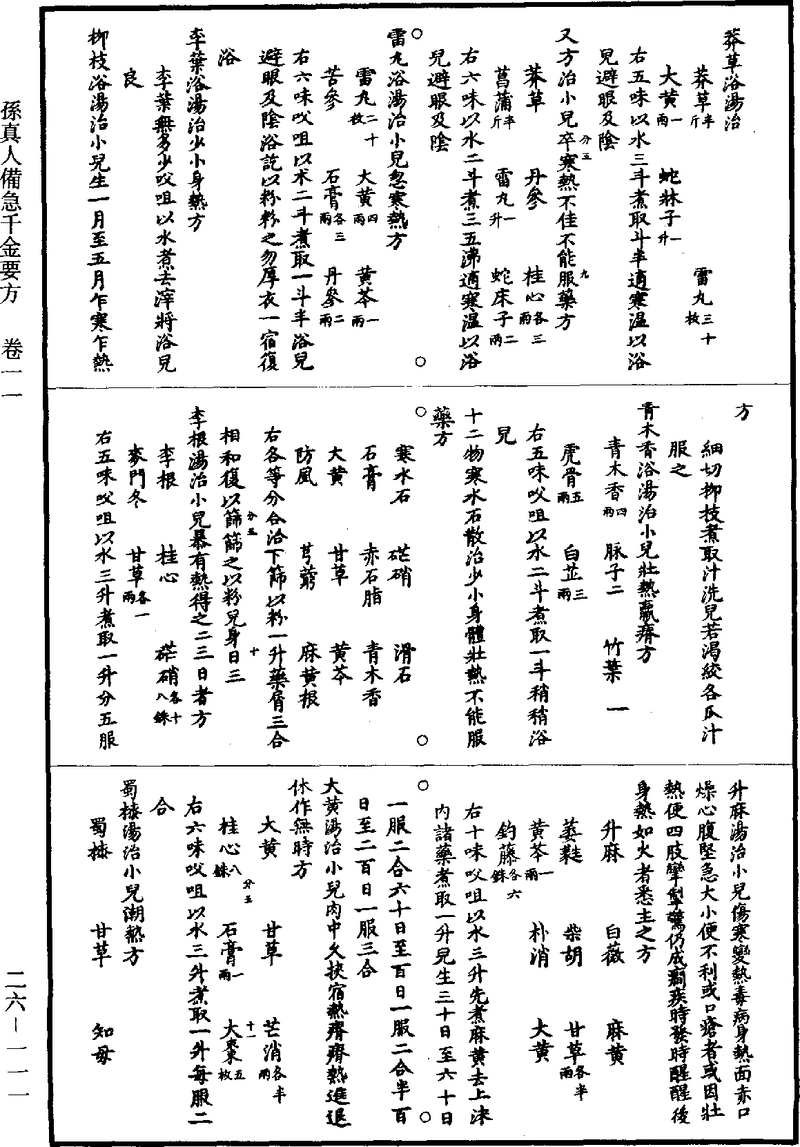 孫真人備急千金要方　卷一一
莽草浴湯治
莽草半斤　雷丸三十枚
大黃一兩　蛇牀子一升
右五味以水三斗煮取斗半適寒温以浴
兒避眼及陰
又方治小兒卒寒熱不佳不能服藥方
莽草　丹參　桂心各三兩
菖蒲半斤　雷丸一升　蛇床子二兩
右六味以水二斗煮三五沸適寒温以浴
兒避眼及陰
雷丸浴湯治小兒忽寒熱方
雷丸二十枚　大黃四兩　黃芩一兩
苦參　石膏各三兩　丹參二兩
右六味㕮咀以水二斗煮取一斗半浴兒
避眼及陰浴訖以粉粉之勿厚衣一宿復
浴
李葉浴湯治少小身熱方
李葉無多少㕮咀以水煮去滓將浴兒
良
柳枝浴湯治小兒生一月至五月乍寒乍熱
方
細切柳枝煮取汁洗兒若渴絞各瓜汁
服之
青木香浴湯治小兒壯熱羸瘠方
青木香四兩　脉子二　竹葉一
虎骨五兩　白芷三兩
右五味㕮咀以水二斗煮取一斗稍稍浴
兒
十二物寒水石散治少小身體壯熱不能服
藥方
寒水石　硭硝　滑石
石膏　赤石脂　青木香
大黃　甘草　黃芩
防風　芎藭　麻黃根
右各等分合治下篩以粉一升藥屑三合
相和復以篩篩之以粉兒身日三
李根湯治小兒暴有熱得之二三日者方
李根　桂心　硭硝各十八銖
麥門冬　甘草各一兩
右五味㕮咀以水三升煮取一升分五服
升麻湯治小兒傷寒變熱毒病身熱面赤口
燥心腹堅急大小便不利或口瘡者或因壯
熱便四肢攣掣驚仍成癎疾時發時醒醒後
身熱如火者悉主之方
升麻　白薇　麻黃
葳蕤　柴胡　甘草各半兩
黃芩一兩　朴消　大黃
鈎藤各六銖
右十味㕮咀以水三升先煮麻黃去上沫
內諸藥煮取一升兒生三十日至六十日
一服二合六十日至百日一服二合半百
日至二百日一服三合
大黃湯治小兒肉中久挾宿熱瘠瘠熱進退
休作無時方
大黃　甘草　芒消各半兩
桂心八銖　石膏一兩　大棗五枚
右六味㕮咀以水三升煮取一升每服二
合
蜀㮶湯治小兒潮熱方
蜀㮶　甘草　知母
二六－一一一